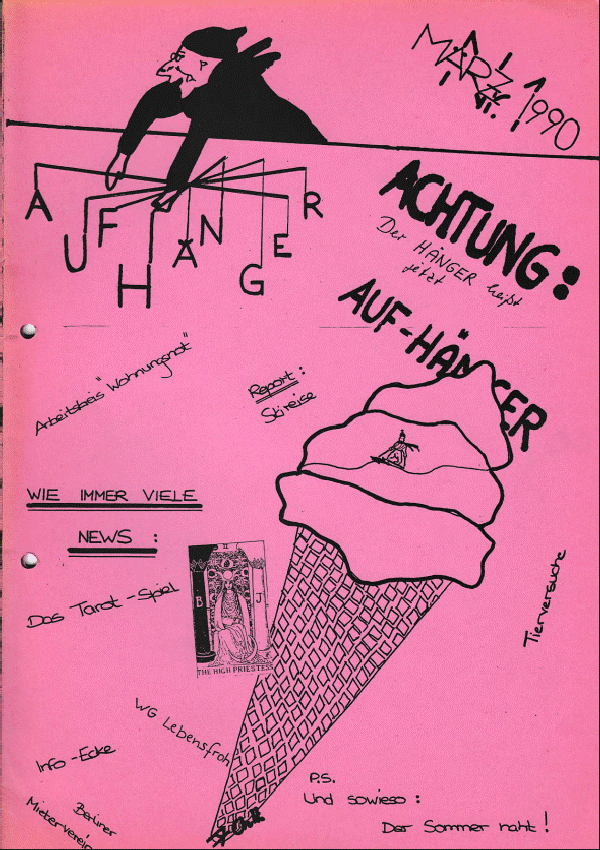 MÄRZ 1990
AUFHÄNGER
ACHTUNG:
Der HÄNGER heißt
jetzt
AUF-HÄNGER
Arbeitskreis "Wohnungsnot"
Report:
Skireise
WIE IMMER VIELE
NEWS:
Das Tarot-Spiel
II
B J
THE HIGH PRIESTESS
Tierversuche
WG Lebensfroh
Info-Ecke
Berliner
Mieterverein
P.S.
Und sowieso:
Der Sommer naht!